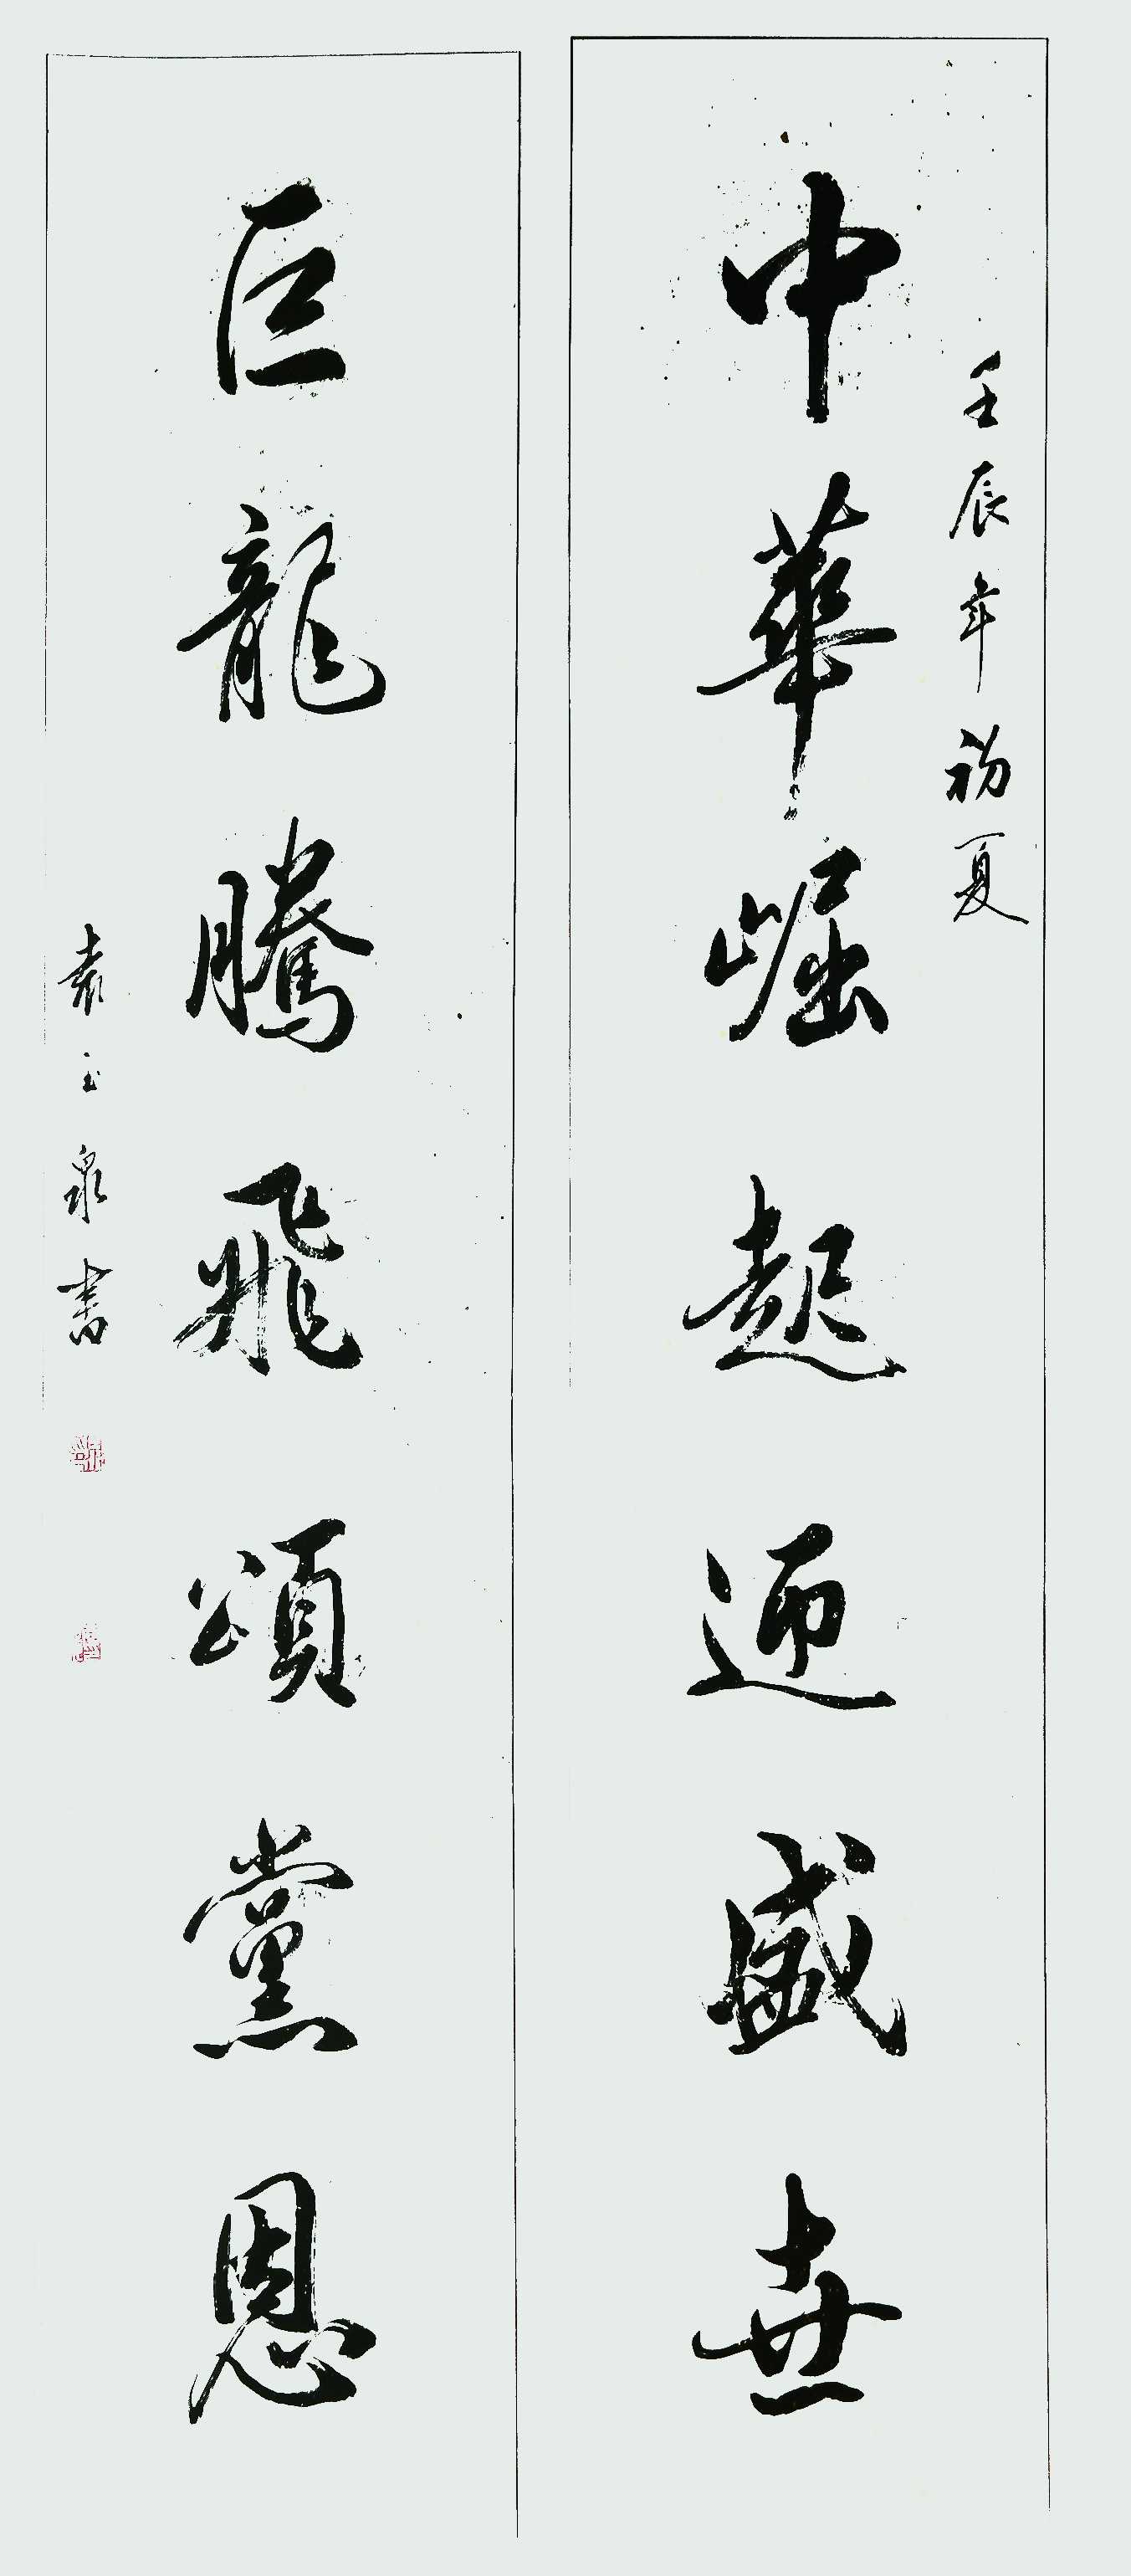 壬辰年初夏
中華崛起迎盛世
巨龍騰飛頌黨恩
袁玉泉書